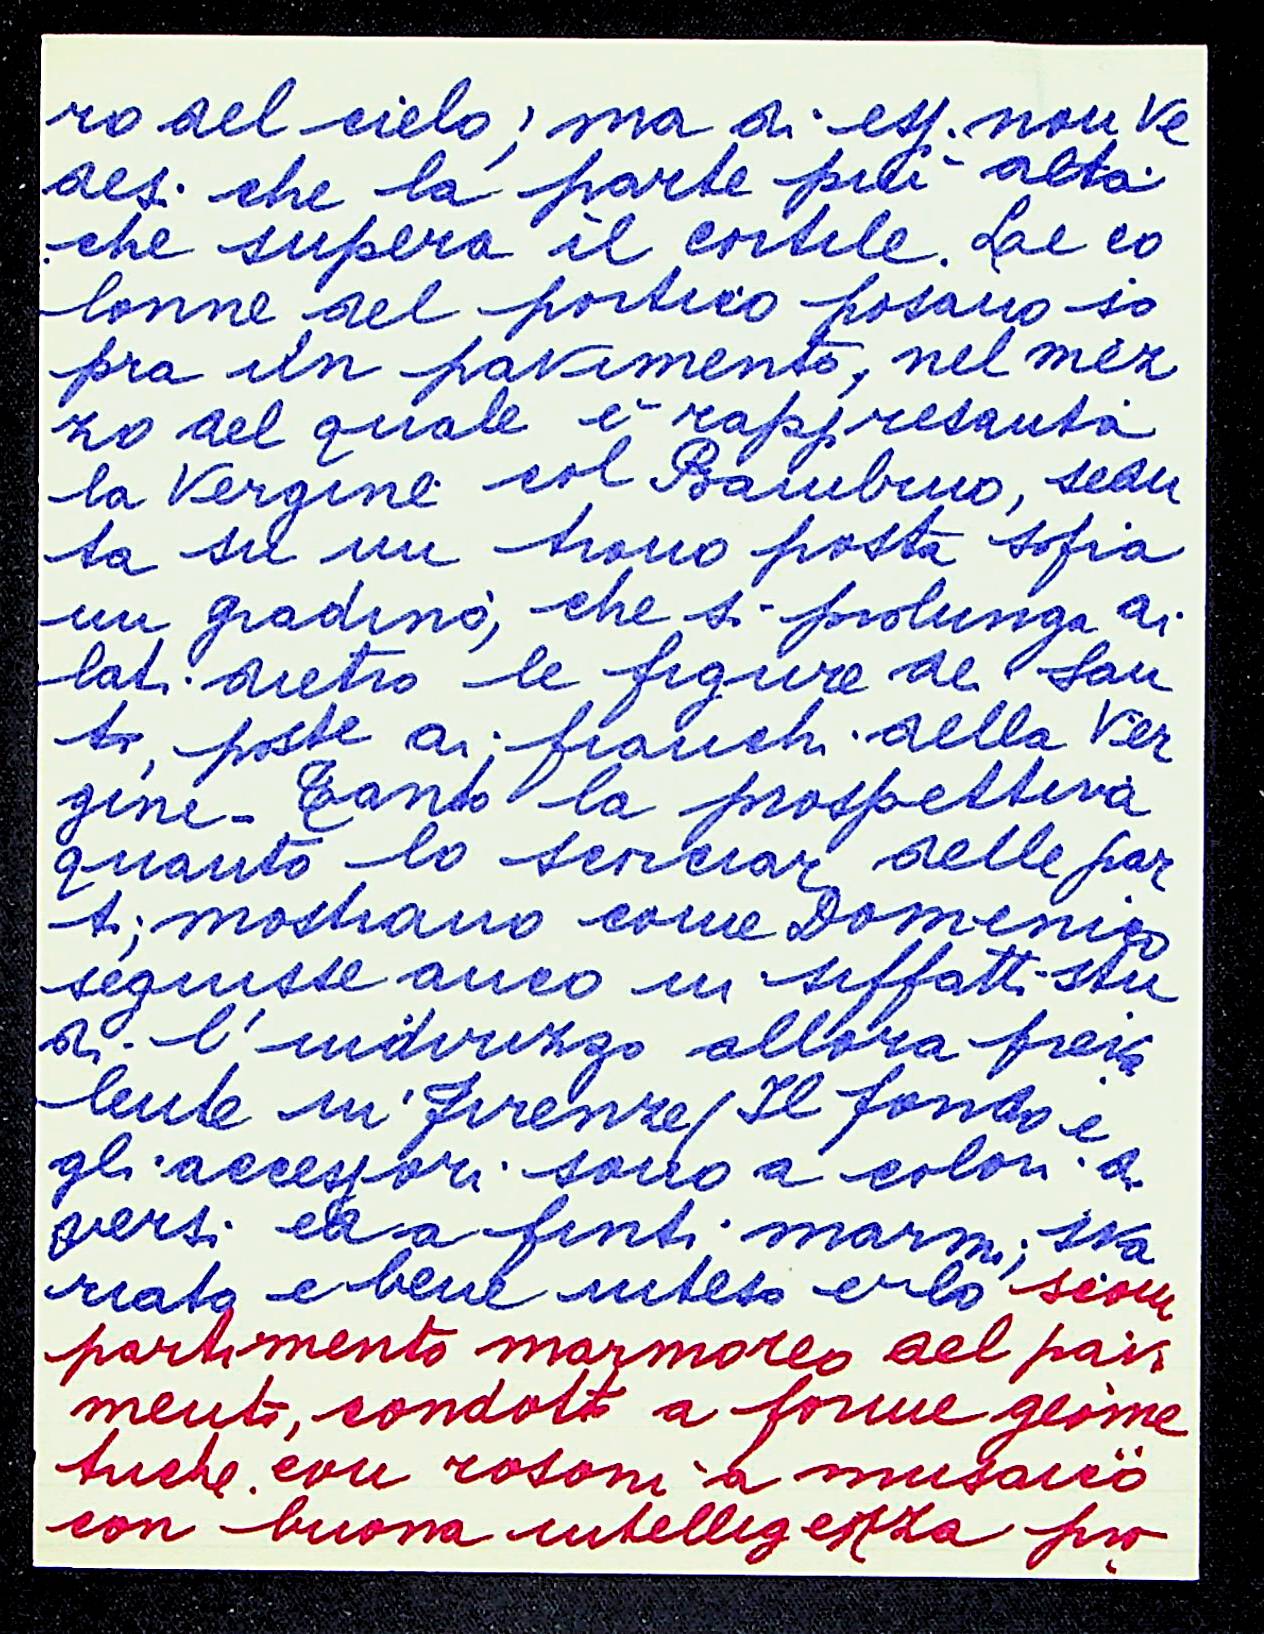 ro del cielo; ma di essi non ve
desi che la parte più alta
che supera il cortile. Le co
lonne del portico posano so
pra un pavimento, nel mez
zo del quale è rappresanta
la Vergine col Bambino, sedu
ta su un trono posta sopra
un gradino, che si prolunga ai
lati dietro le figure dei San
ti, poste ai fianchi della Ver
gine - Tanto la prospettiva
quanto lo scorciar delle par
ti, mostrano come Domenico
seguisse anco in siffatti stu
di l'indirizzo allora preva
lente in Firenze / Il fondo e
gli accessori sono a colori di
versi ed a finti marmi; sva
riato e bene inteso è lo scom
partimento marmoreo del pavi
mento, condotto a forme geome
triche con rosoni a musaico
con buona intelligenza pro